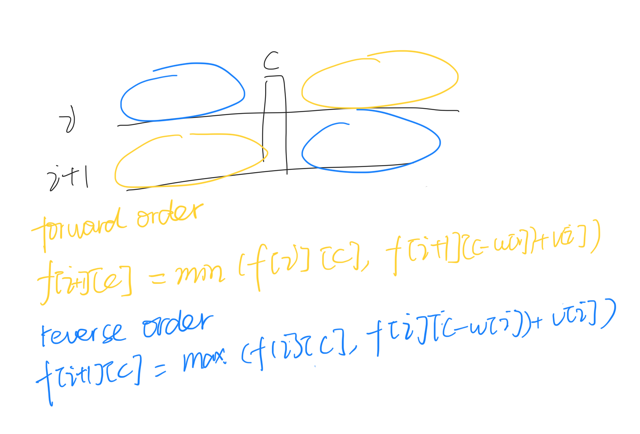 C
i
i+1
forward order
f[i+1][c] = min (f[i][c], f[i+1][c-w[i]]+v[i])
reverse order
f[i+1][c] = max (f[i][c], f[i][c-w[i]]+v[i])